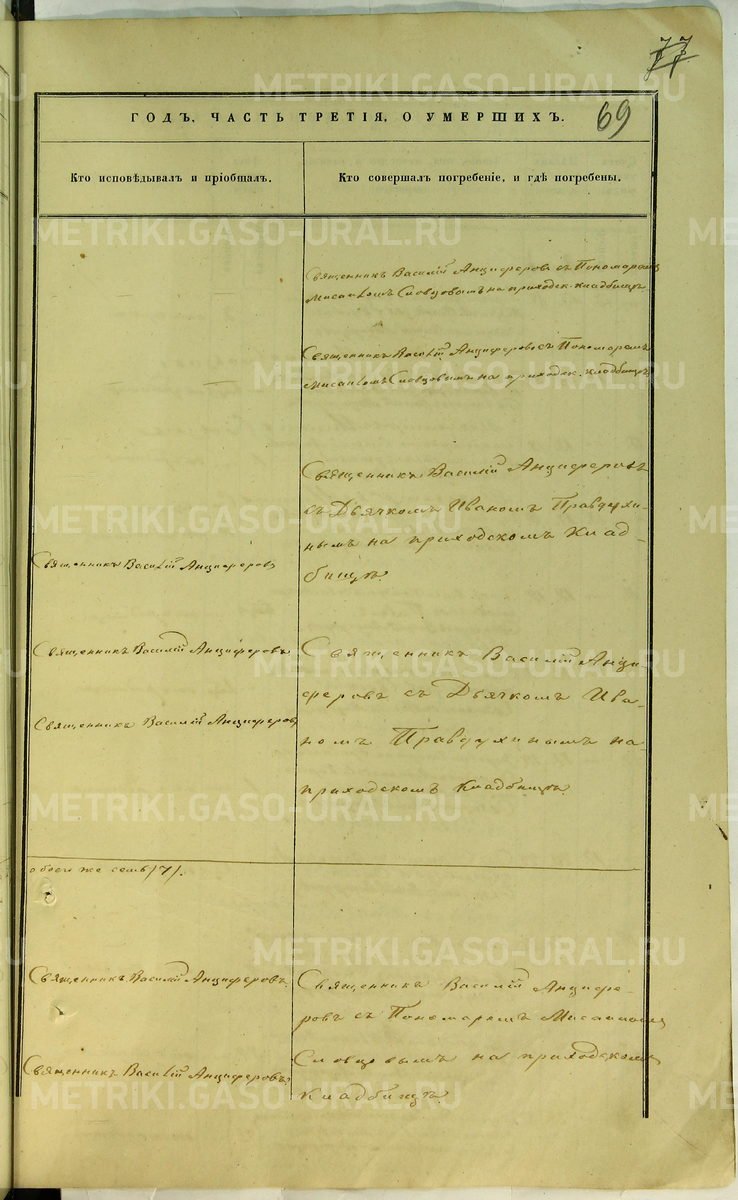 77
69
ГОДЪ, ЧАСТЬ ТРЕТІЯ, О УМЕРШИХЪ.
Кто исповѣдывалъ и пріобщалъ.
Кто совершалъ погребеніе, и гдѣ погребены.
Священникъ Василій Анциферовъ съ Пономаремъ
Мисаиломъ Словцовымъ на приходск. кладбищѣ
Священникъ Василій Анциферовъ съ Пономаремъ
Мисаиломъ Словцовымъ на приходск. кладбищѣ
Священникъ Василій Анциферовъ
съ Дьячкомъ Иваномъ Правдухи-
нымъ на приходскомъ Клад-
бищѣ.
Священникъ Василій Анциферовъ
Священникъ Василій Анциферовъ
Священникъ Василій Анциферовъ
Священникъ Василій Анци-
феровъ съ Дьячкомъ Ива-
номъ Правдухинымъ на
приходскомъ Кладбищѣ.
обоего же семь /7/.
Священникъ Василій Анциферовъ.
Священникъ Василій Анциферовъ.
Священникъ Василій Анцифе-
ровъ съ Пономаремъ Мисаиломъ
Словцовымъ на приходскомъ
Кладбищѣ.
METRIKI.GASO-URAL.RU